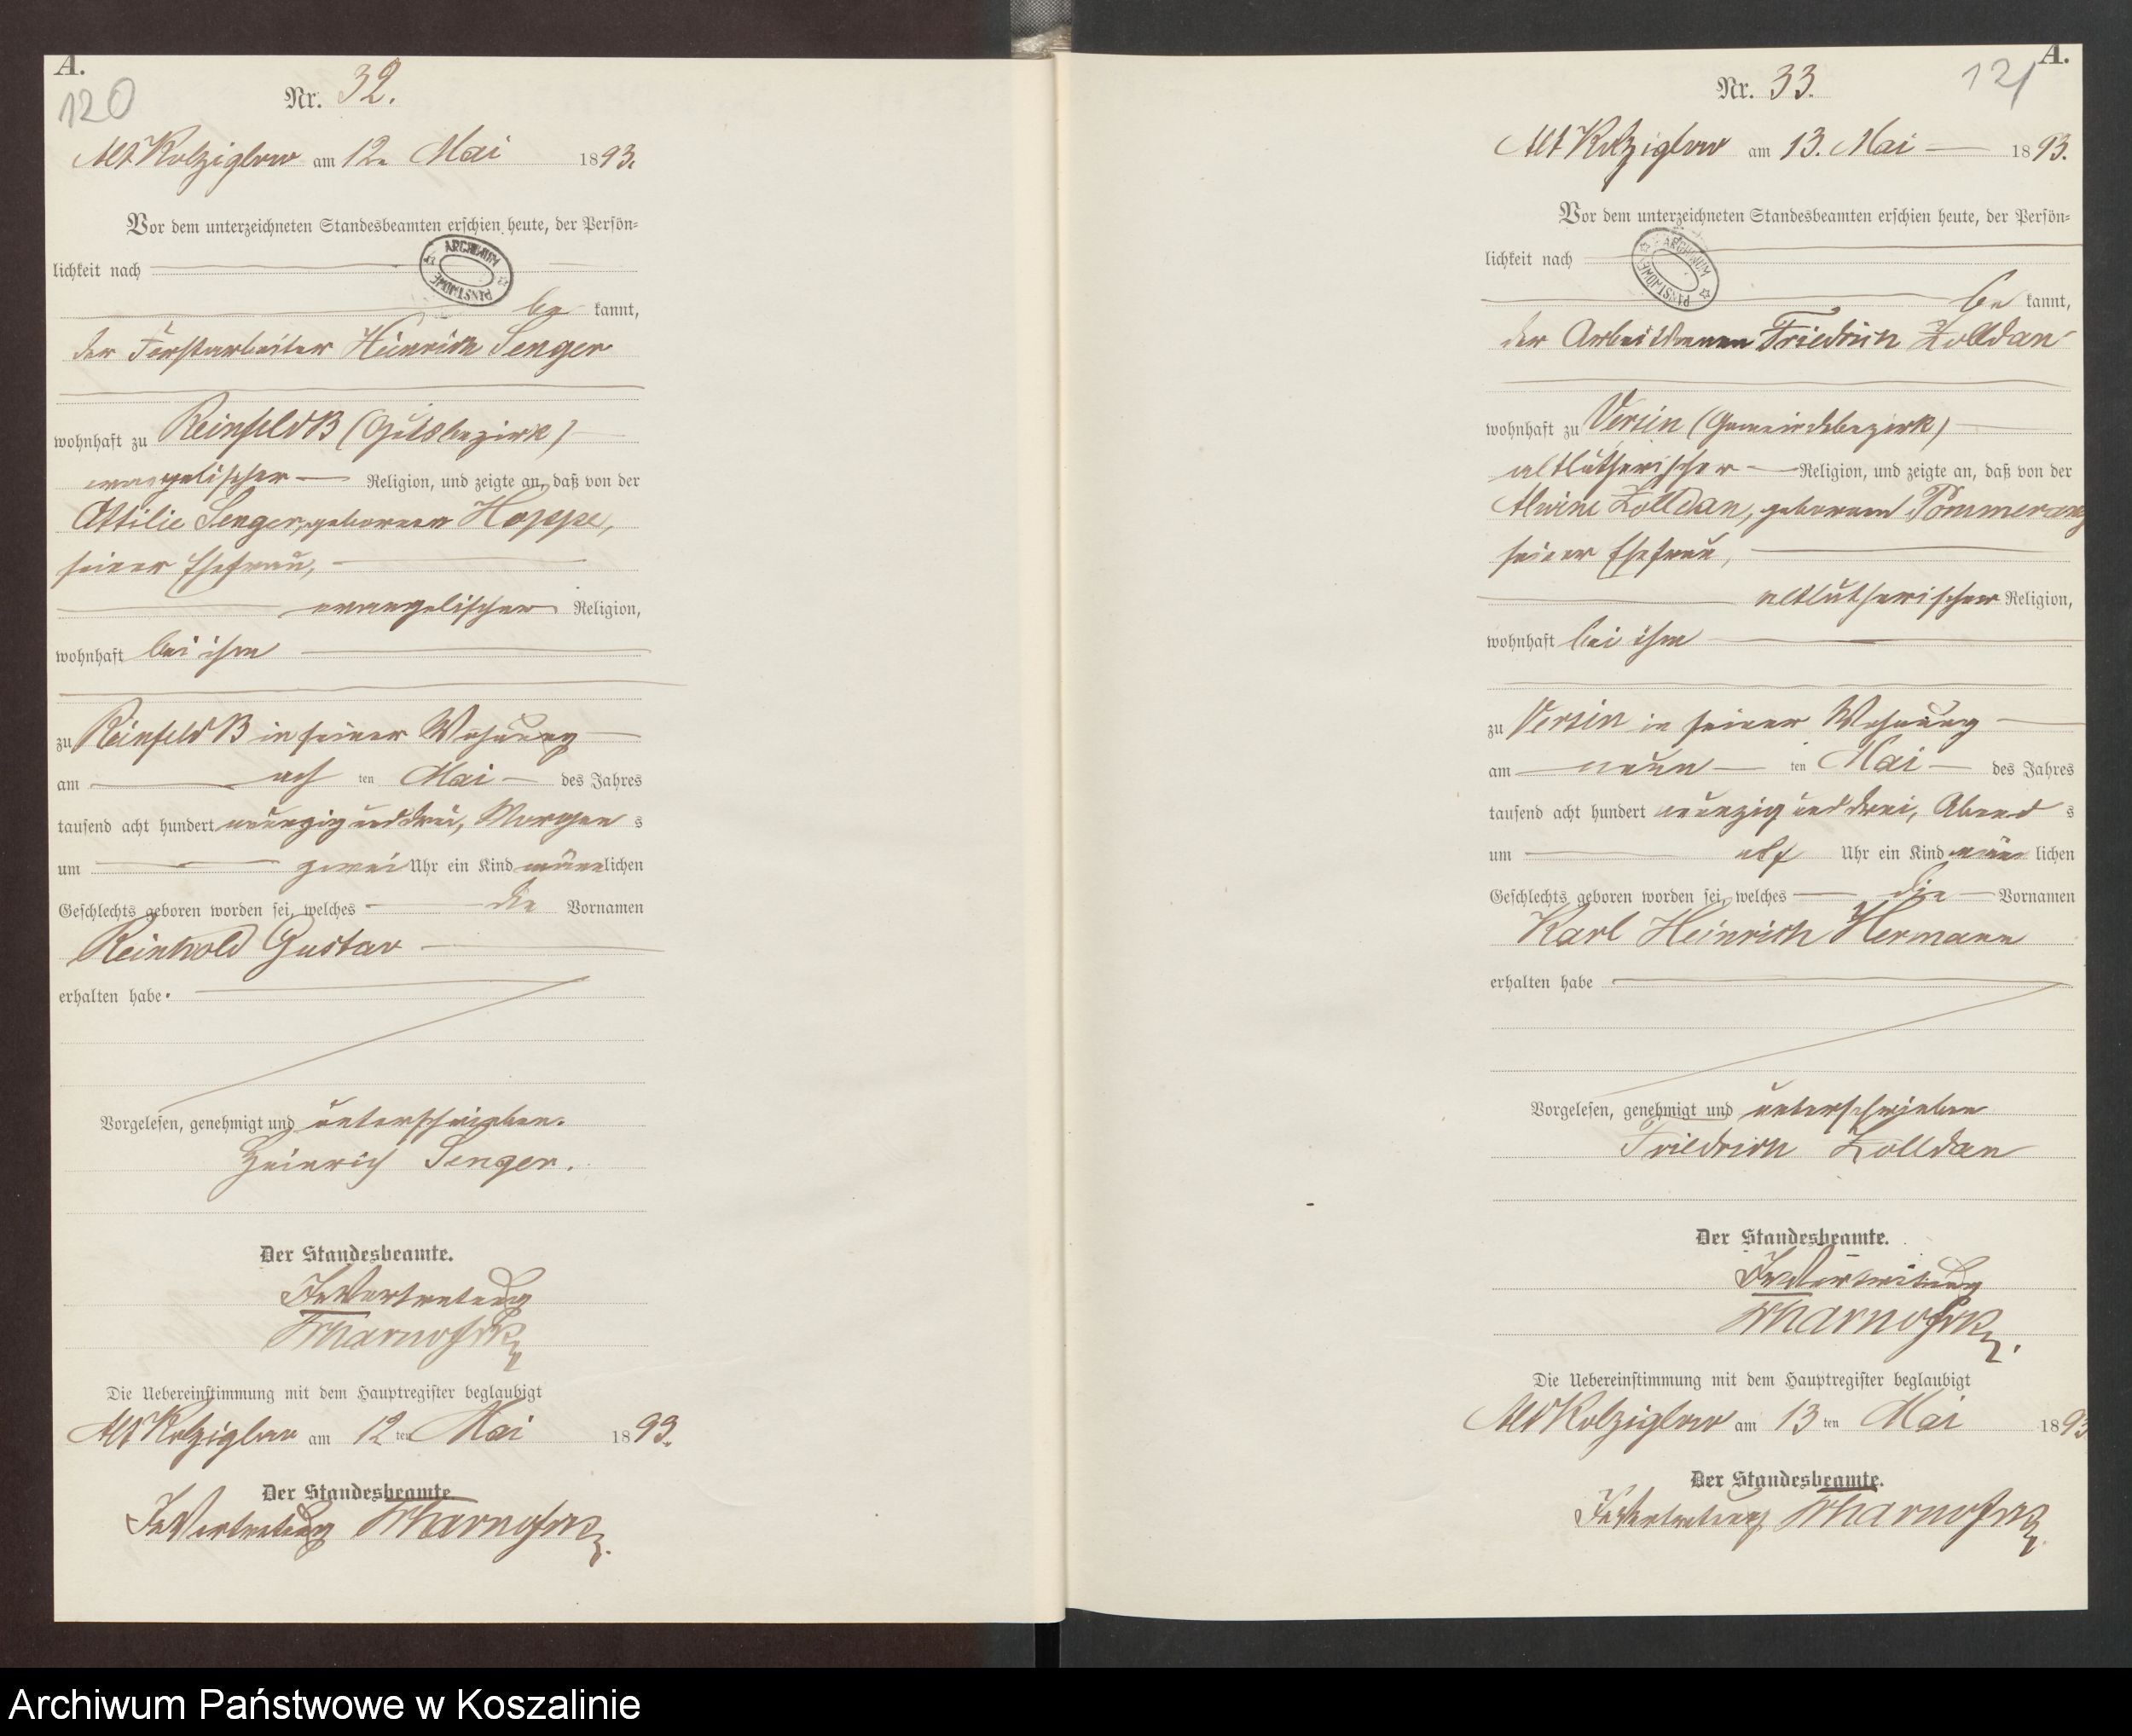 A.
120
Nr. 32.
Alt Kolziglow am 12. Mai 1893.
Vor dem unterzeichneten Standesbeamten erschien heute, der Persön-
lichkeit nach
ARCHIWUM PAŃSTWOWE
be kannt,
der Forstarbeiter Heinrich Senger
wohnhaft zu Reinfeld B (Gutsbezirk)
evangelischer Religion, und zeigte an, daß von der
Ottilie Senger, geborenen Hoppe,
seiner Ehefrau,
evangelischer Religion,
wohnhaft bei ihm
zu Reinfeld B in seiner Wohnung
am acht ten Mai des Jahres
tausend acht hundert neunzig und drei, Morgen s
um zwei Uhr ein Kind männlichen
Geschlechts geboren worden sei, welches die Vornamen
Reinhold Gustav
erhalten habe.
Vorgelesen, genehmigt und unterschrieben.
Heinrich Senger.
Der Standesbeamte.
In Vertretung
Die Uebereinstimmung mit dem Hauptregister beglaubigt
Alt Kolziglow am 12 ten Mai 1893.
Der Standesbeamte.
In Vertretung
A.
121
Nr. 33.
Alt Kolziglow am 13. Mai 1893.
Vor dem unterzeichneten Standesbeamten erschien heute, der Persön-
lichkeit nach
ARCHIWUM PAŃSTWOWE
be kannt,
der Arbeitsmann Friedrich Zolldan
wohnhaft zu Versin (Gemeindebezirk)
altlutherischer Religion, und zeigte an, daß von der
Alwine Zolldan, geborenen Pommerenz
seiner Ehefrau,
altlutherischer Religion,
wohnhaft bei ihm
zu Versin in seiner Wohnung
am neun ten Mai des Jahres
tausend acht hundert neunzig und drei, Abend s
um elf Uhr ein Kind männlichen
Geschlechts geboren worden sei, welches die Vornamen
Karl Heinrich Hermann
erhalten habe
Vorgelesen, genehmigt und unterschrieben
Friedrich Zolldan
Der Standesbeamte.
In Vertretung
Die Uebereinstimmung mit dem Hauptregister beglaubigt
Alt Kolziglow am 13 ten Mai 1893
Der Standesbeamte.
In Vertretung
Archiwum Państwowe w Koszalinie